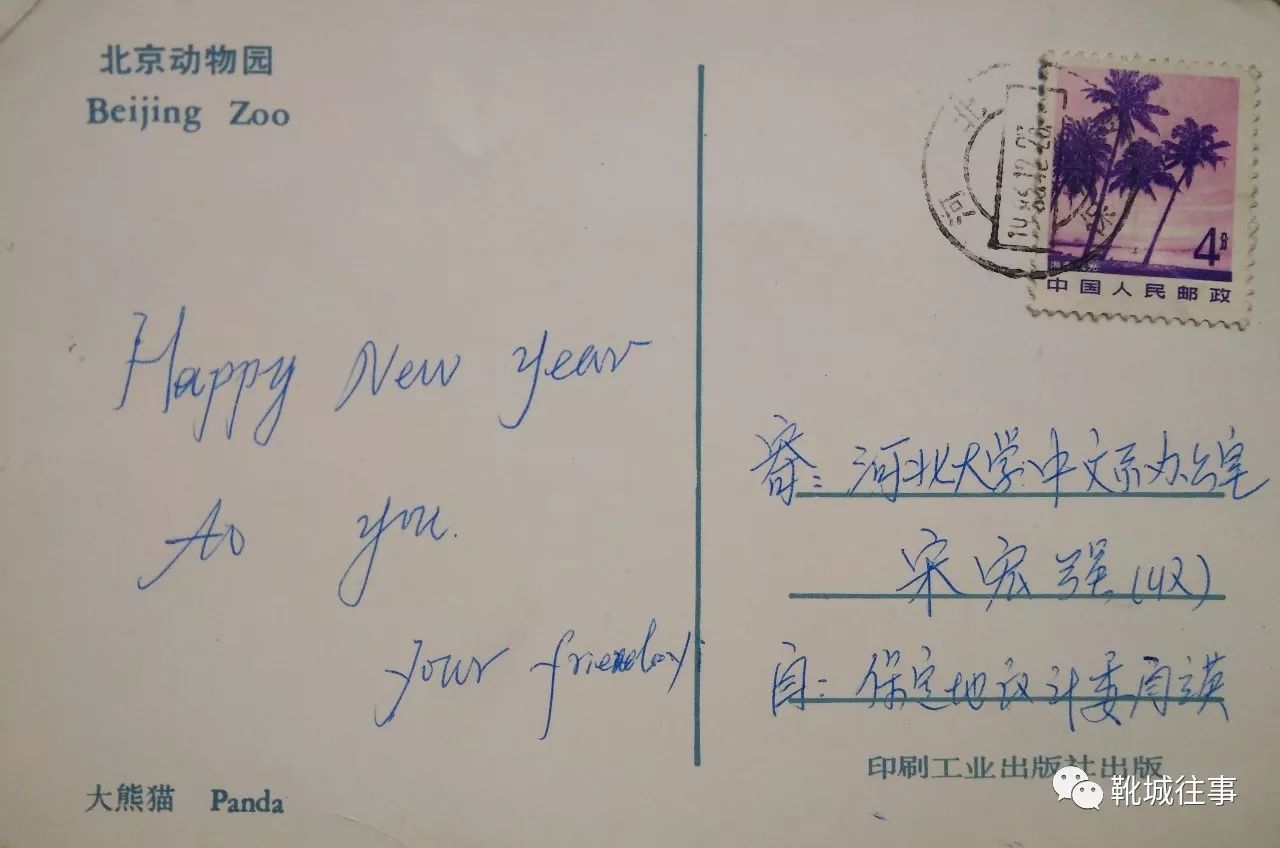 北京动物园
Beijing Zoo
Happy New Year
to you.
your friend
大熊猫 Panda
河北
保
4分
中国人民邮政
寄：河北大学中文系办公室
宋宏强（收）
自：保定地 计委
印刷工业出版社出版
靴城往事